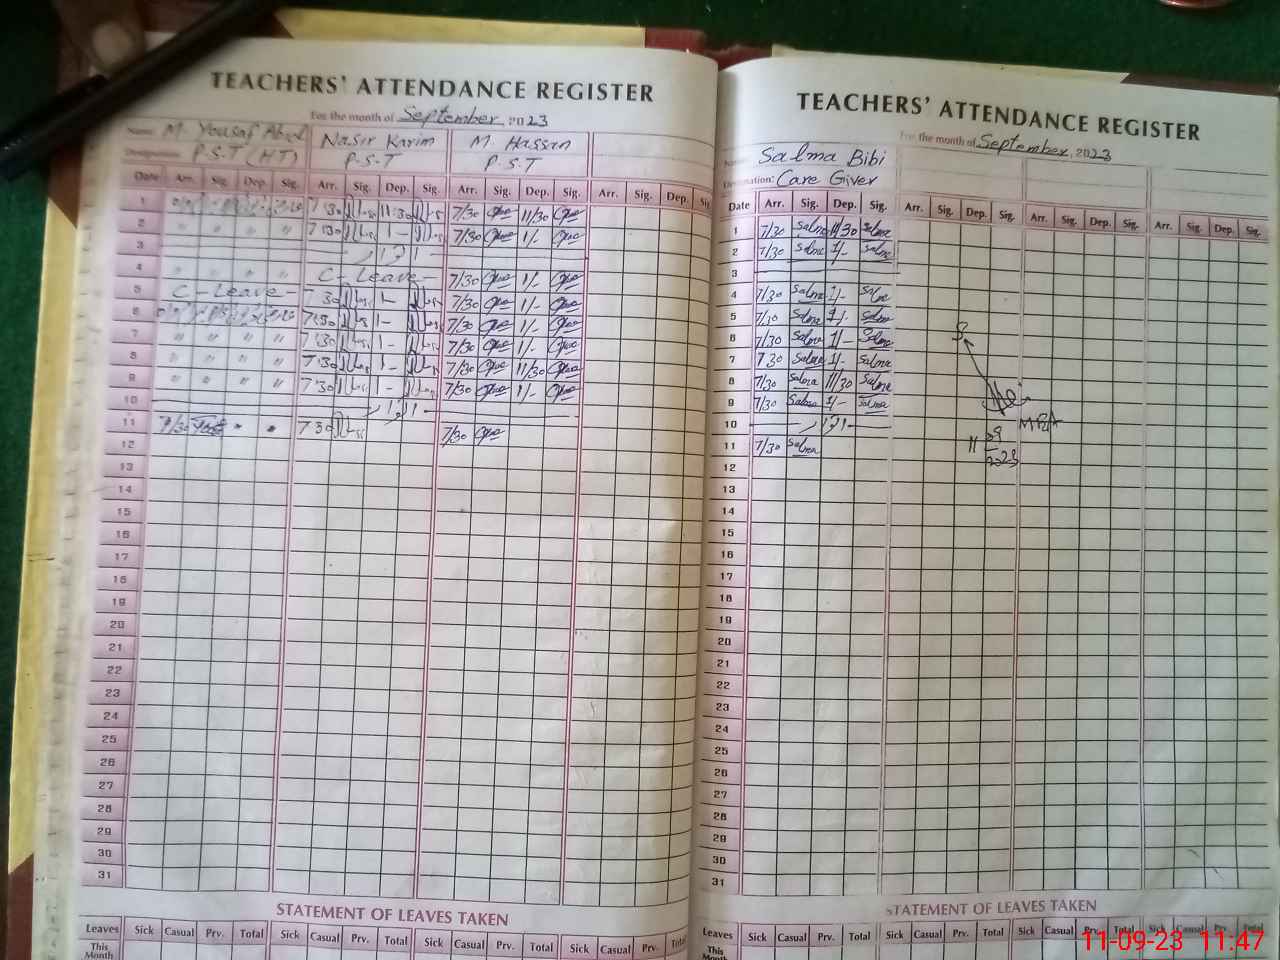 TEACHERS' ATTENDANCE REGISTER
For the month of September, 2023
Name: M. Yousaf Nasir Karim M. Hassan
Designation: P.S.T (HT) P.S.T P.S.T
Date Arr. Sig. Dep. Sig. Arr. Sig. Dep. Sig. Arr. Sig. Dep. Sig. Arr. Sig. Dep. Sig.
1 7:30 11:30 7/30 11/30
2 " " " " 7:30 1- 7/30 1/-
3
4 " " " " C-Leave- 7/30 1/-
5 C-Leave- 7:30 1- 7/30 1/-
6 7:30 1- 7/30 1/-
7 " " " " 7:30 1- 7/30 1/-
8 " " " " 7:30 1- 7/30 11/30
9 " " " " 7:30 1- 7/30 1/-
10
11 7/30 7 30 7/30
12
13
14
15
16
17
18
19
20
21
22
23
24
25
26
27
28
29
30
31
STATEMENT OF LEAVES TAKEN
Leaves Sick Casual Prv. Total Sick Casual Prv. Total Sick Casual Prv. Total Sick Casual Prv. Total
This Month
TEACHERS' ATTENDANCE REGISTER
For the month of September, 2023
Name: Salma Bibi
Designation: Care Giver
Date Arr. Sig. Dep. Sig. Arr. Sig. Dep. Sig. Arr. Sig. Dep. Sig. Arr. Sig. Dep. Sig.
1 7/30 Salma 11/30 Salma
2 7/30 Salma 1/- Salma
3
4 7/30 Salma 1/- Salma
5 7/30 Salma 1/- Salma
6 7/30 Salma 1/- Salma
7 7 30 Salma 1/- Salma
8 7/30 Salma 11/30 Salma
9 7/30 Salma 1/- Salma
10
11 7/30 Salma
12
13
14
15
16
17
18
19
20
21
22
23
24
25
26
27
28
29
30
31
11 09 2023
STATEMENT OF LEAVES TAKEN
Leaves Sick Casual Prv. Total Sick Casual Prv. Total Sick Casual Prv. Total Sick Casual Prv. Total
This Month
11-09-23 11:47